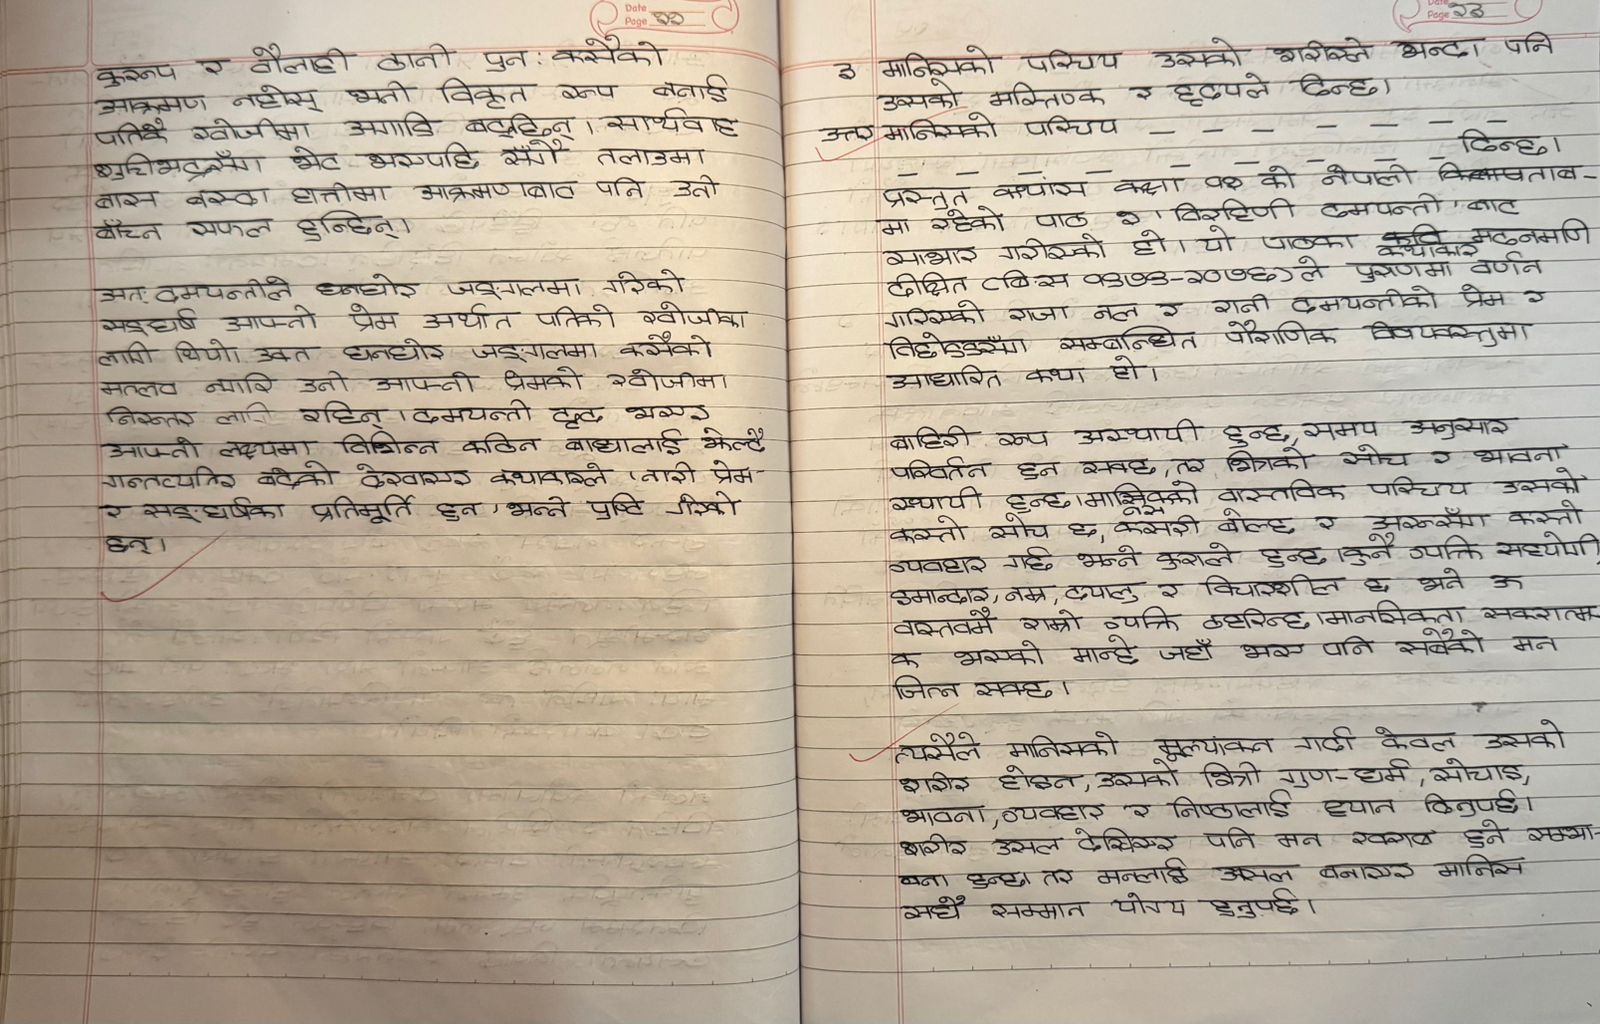 Date
Page २२
कुरूप र बौलाही ठानी पुन: कसैको
आक्रमण नहोस् भनी विकृत रूप बनाई
पतिकै खोजीमा अगाडि बढ्छिन्। सार्थवाह
शुचिभद्रसँग भेट भएपछि सँगै तलाउमा
बास बस्दा हात्तीमा आक्रमणबाट पनि उनी
बाँच्न सफल हुन्छिन्।
अत: दमयन्तीले घनघोर जङ्गलमा गरेको
सङ्घर्ष आफ्नो प्रेम अर्थात पतिको खोजीका
लागि थियो। उक्त घनघोर जङ्गलमा कसैको
मतलव नगरि उनी आफ्नो प्रेमको खोजीमा
निरन्तर लागि रहिन्। दमयन्ती दृढ भएर
आफ्नो लक्ष्यमा विभिन्न कठिन बाधालाई झेल्दै
गन्तव्यतिर बढेको देखाएर कथाकारले 'नारी प्रेम
र सङ्घर्षका प्रतिमूर्ति हुन' भन्ने पुष्टि गरेको
छन्।
Date
Page २३
३ मानिसको परिचय उसको शरीरले भन्दा पनि
उसको मस्तिष्क र हृदयले दिन्छ।
उत्तर मानिसको परिचय _ _ _ _ _ _ _
_ _ _ _ _ _ _ _ दिन्छ।
प्रस्तुत कथांस कक्षा १२ को नेपाली किताब-
मा रहेको पाठ २ 'विरहिणी दमयन्ती' बाट
साभार गरीएको हो। यो पाठका कथाकार मदनमणि
दीक्षित (बि.स १९७९-२०७६) ले पुराणमा वर्णन
गरिएको राजा नल र रानी दमयन्तीको प्रेम र
विछोडसँग सम्बन्धित पौराणिक विषयवस्तुमा
आधारित कथा हो।
बाहिरी रूप अस्थायी हुन्छ, समय अनुसार
परिवर्तन हुन सक्छ, तर भित्रको सोच र भावना
स्थायी हुन्छ। मानिसको वास्तविक परिचय उसको
कस्तो सोच छ, कसरी बोल्छ र अरूसँग कस्तो
व्यवहार गर्छ भन्ने कुराले हुन्छ। कुनै व्यक्ति सहयोगी,
इमान्दार, नम्र, दयालु र विचारशील छ भने ऊ
वास्तवमै राम्रो व्यक्ति ठहरिन्छ। मानसिकता सकरात्म-
क भएको मान्छे जहाँ भए पनि सबैको मन
जित्न सक्छ।
त्यसैले मानिसको मूल्यांकन गर्दा केवल उसको
शरीर होइन, उसको भित्री गुण-धर्म, सोचाइ,
भावना, व्यवहार र निष्ठालाई ध्यान दिनुपर्छ।
शरीर उसल देखिएर पनि मन खराब हुने सम्भा-
बना हुन्छ। तर मनलाई असल बनाएर मानिस
सधैँ सम्मान योग्य हुनुपर्छ।